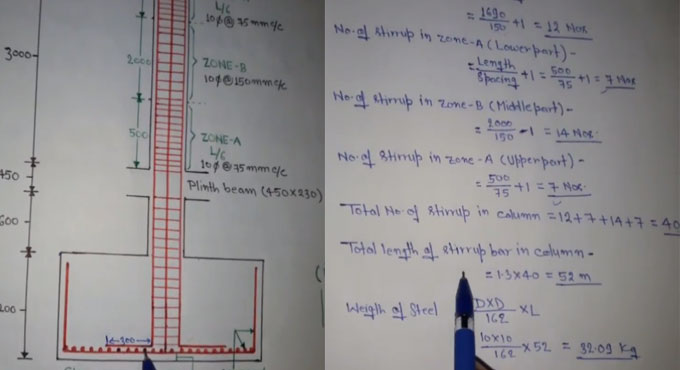 L/c
10ϕ@75mmc/c
3000
2000
ZONE-B
10ϕ@150mmc/c
500
ZONE-A
L/c
10ϕ@75mmc/c
450
Plinth beam (450×230)
600
200
= 1690/150 + 1 = 12 Nos.
No. of stirrup in zone-A (Lower part) -
= Length/Spacing + 1 = 500/75 + 1 = 7 Nos
No. of stirrup in zone-B (Middle part) -
= 2000/150 - 1 = 14 Nos.
No. of stirrup in zone-A (Upper part) -
= 500/75 + 1 = 7 Nos.
Total No of stirrup in column = 12+7+14+7 = 40
Total length of stirrup bar in column -
= 1.3×40 = 52 m
Weigth of Steel D×D/162 × L
10×10/162 × 52 = 32.09 Kg